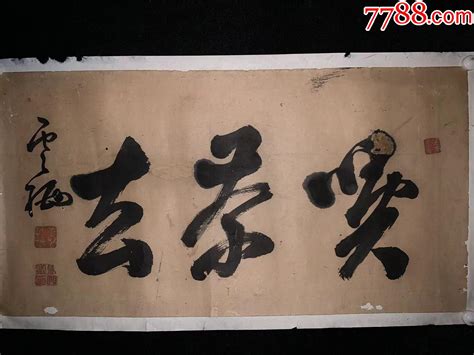 7788.com
喫茶去
雲